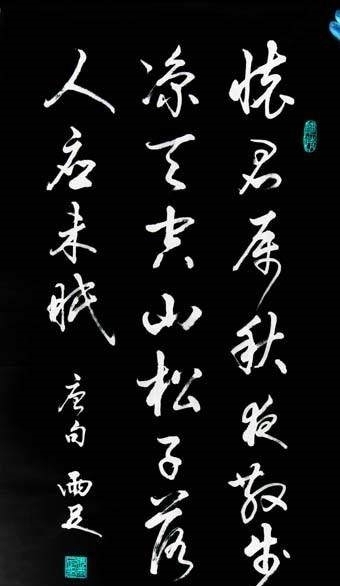 懷君属秋夜散步
凉天空山松子落
人应未眠
唐句 雨足